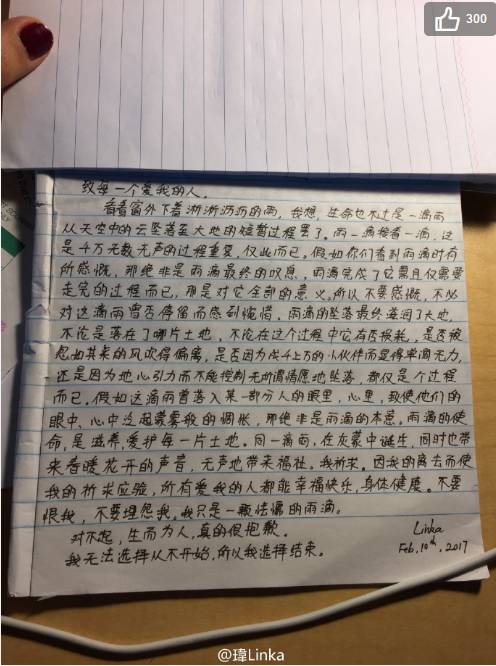 300
致每一个爱我的人.
看着窗外下着淅淅沥沥的雨, 我想, 生命也不过是一滴雨
从天空中的云坠落至大地的短暂过程罢了。雨一滴接着一滴, 这
是千万无数无声的过程重复, 仅此而已。假如你们看到雨滴时有
所感慨, 那绝非是雨滴最终的叹息, 雨滴完成了它需且仅需要
走完的过程而已, 那是对它全部的意义。所以不要感慨, 不必
对这滴雨曾否停留而感到惋惜, 雨滴的坠落最终滋润了大地,
不论是落在了哪片土地, 不论在这个过程中它有否损耗, 是否被
忽如其来的风吹得偏离, 是否因为成千上万的小伙伴而显得单调无力,
还是因为地心引力而不能控制无所谓情愿地坠落, 都仅是个过程
而已, 假如这滴雨曾落入某一部分人的眼里, 心里, 致使他们的
眼中、心中泛起雾雾般的惆怅, 那绝非是雨滴的本意。雨滴的使
命, 是滋养, 爱护每一片土地。同一滴雨, 在灰霾中诞生, 同时也带
来春暖花开的声音, 无声地带来福祉。我祈求。因我的离去而使
我的祈求应验, 所有爱我的人都能幸福快乐, 身体健康。不要
恨我, 不要埋怨我。我只是一颗怯懦的雨滴。
对不起, 生而为人, 真的很抱歉.
我无法选择从不开始, 所以我选择结束。
Linka
Feb, 10th, 2017
@瑋Linka